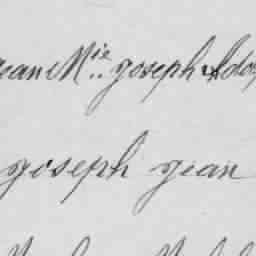 Jean Mie joseph Adol
joseph jean